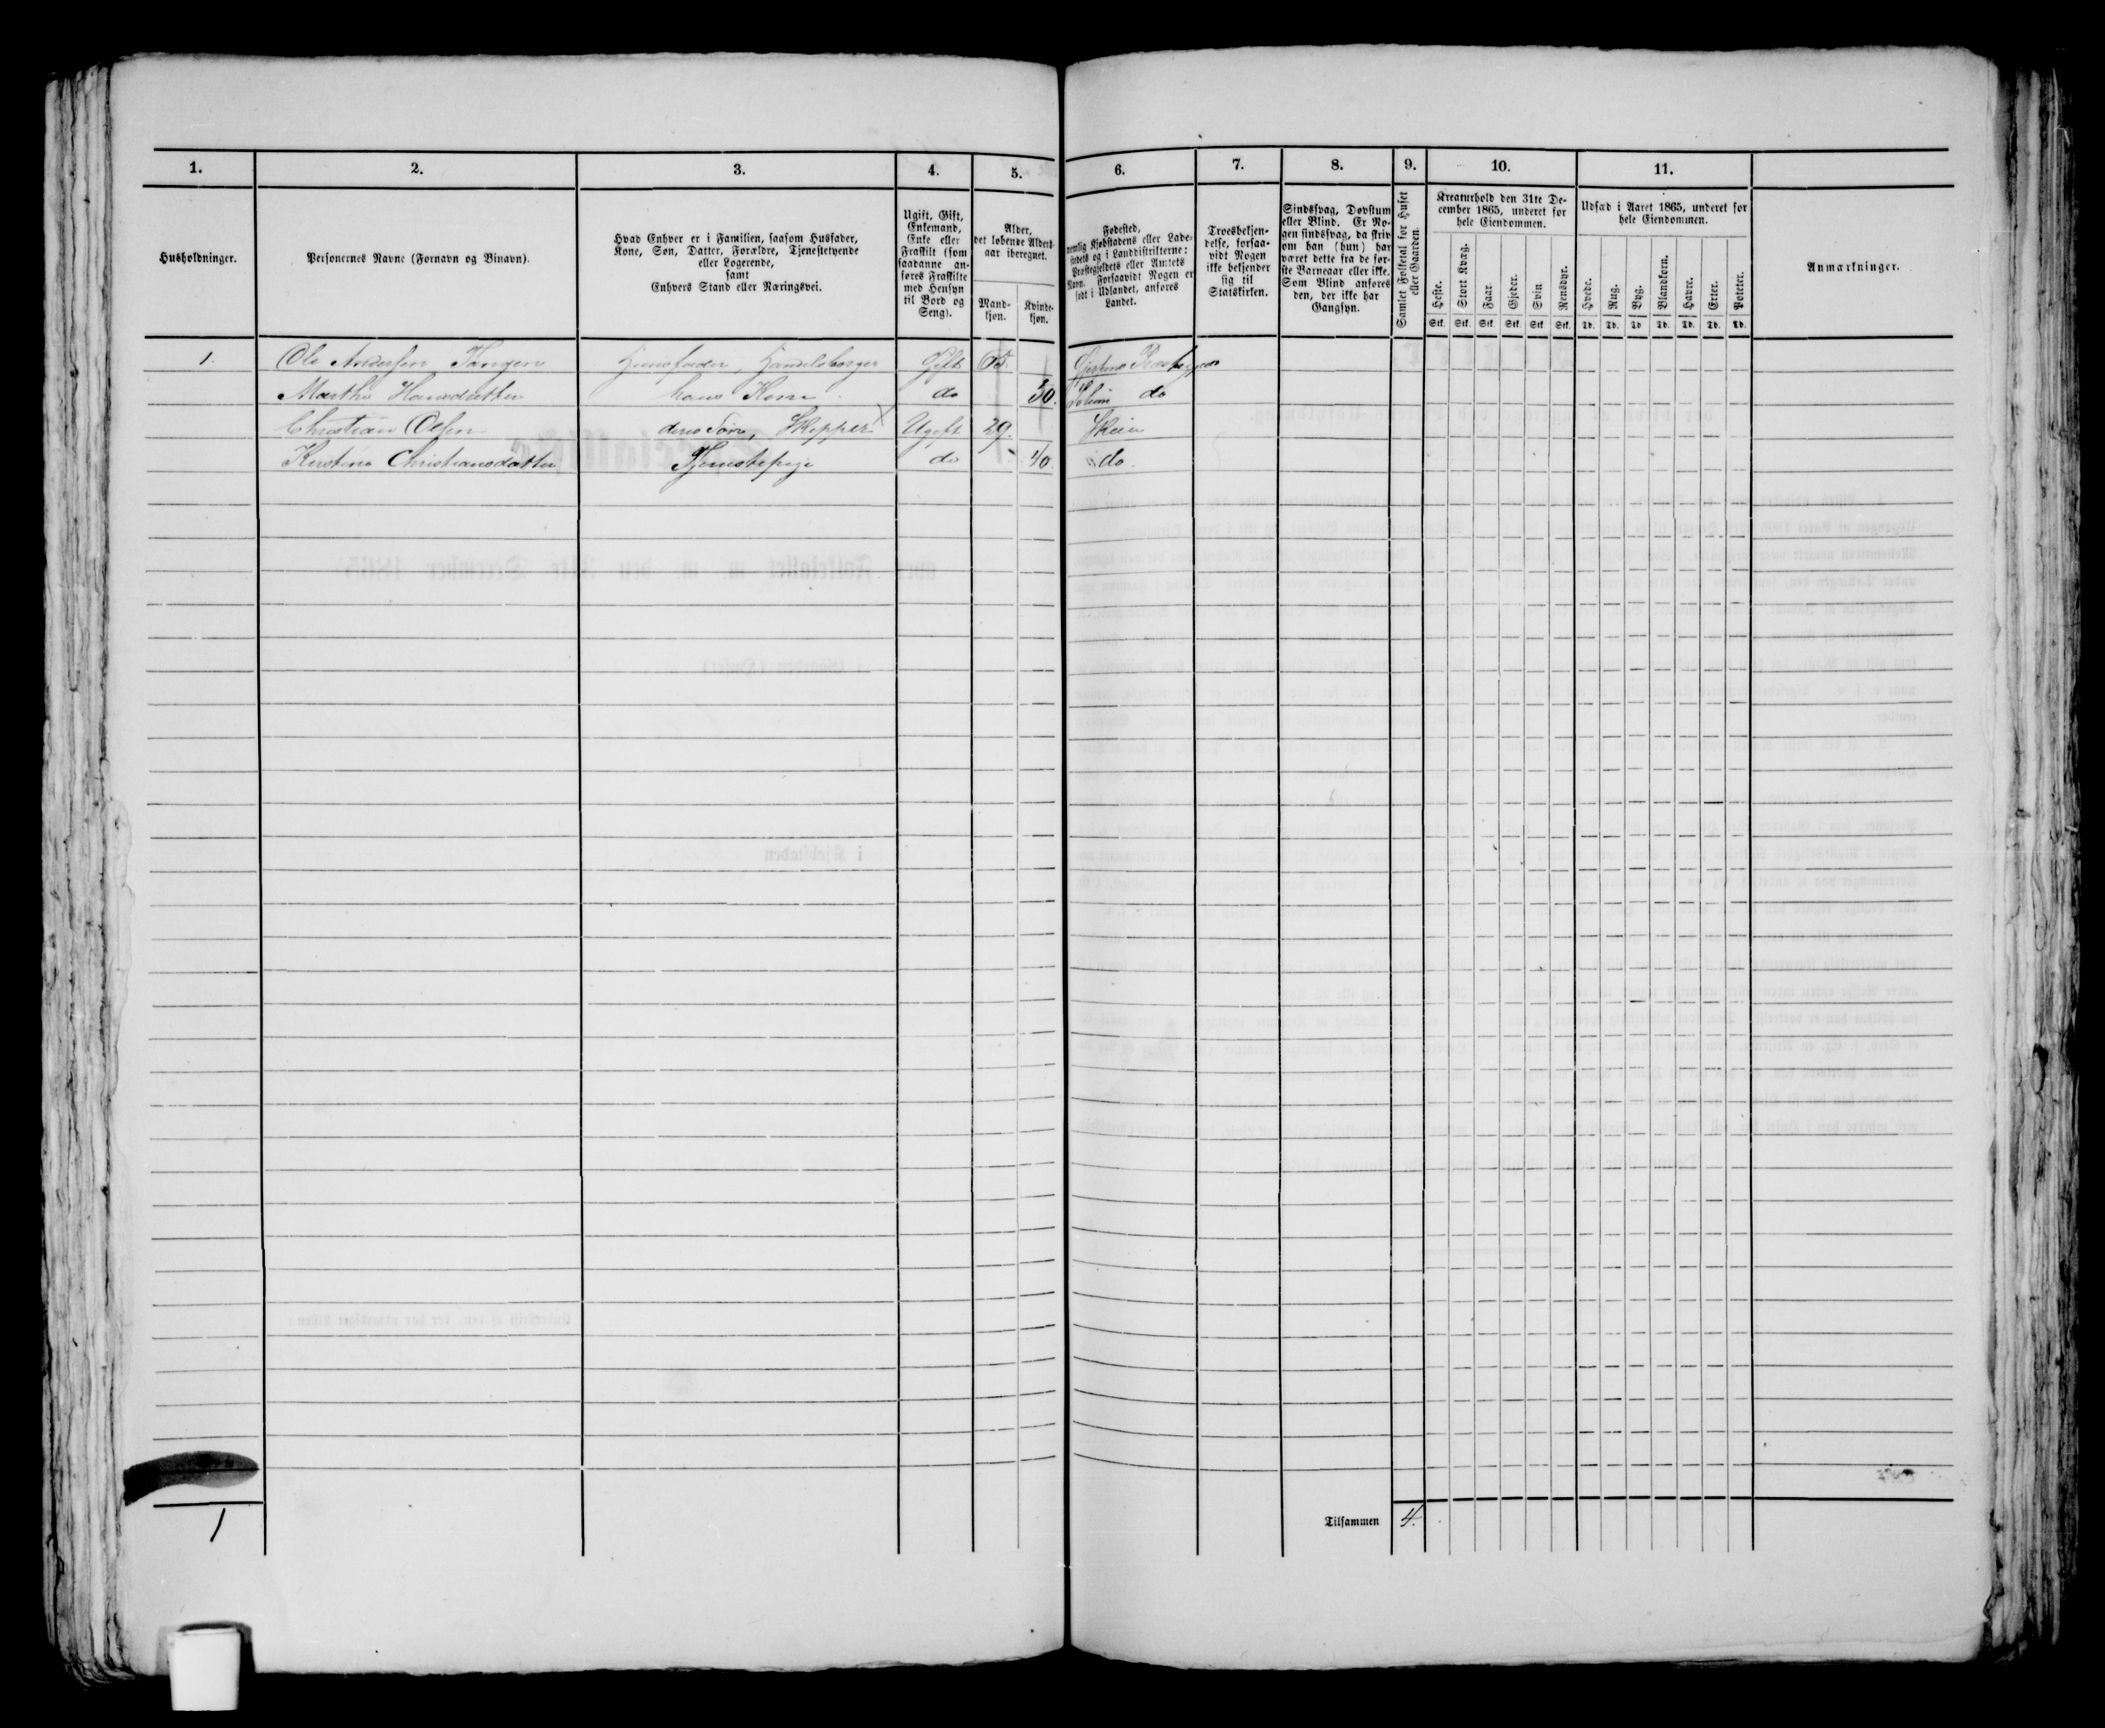 1. 2. 3. 4. 5. 6. 7. 8. 9. 10. 11.
Husholdninger.
Personernes Navne (Fornavn og Binavn).
Hvad Enhver er i Familien, saasom Husfader,
Kone, Søn, Datter, Forældre, Tjenestetyende
eller Logerende,
samt
Enhvers Stand eller Næringsvei.
Ugift, Gift,
Enkemand,
Enke eller
Fraskilt (som
saadanne an-
føres Fraskilte
med Hensyn
til Bord og
Seng).
Alder,
det løbende Alders-
aar iberegnet.
Mand-
kjøn.
Kvinde-
kjøn.
Fødested,
nemlig Kjøbstadens eller Lade-
stedets og i Landdistrikterne:
Præstegjeldets eller Amtets
Navn. Forsaavidt Nogen er
født i Udlandet, anføres
Landet.
Troesbekjen-
delse, forsaa-
vidt Nogen
ikke bekjender
sig til
Statskirken.
Sindssvag, Døvstum
eller Blind. Er No-
gen sindssvag, da skriv
om han (hun) har
været dette fra de før-
ste Barneaar eller ikke.
Som Blind anføres
den, der ikke har
Gangsyn.
Samlet Folketal for Huset
eller Gaarden.
Kreaturhold den 31te De-
cember 1865, underet for
hele Eiendommen.
Heste. Stort Kvæg. Faar. Gjeder. Svin. Rensdyr.
Stk. Stk. Stk. Stk. Stk. Stk.
Udsæd i Aaret 1865, underet for
hele Eiendommen.
Hvede. Rug. Byg. Blandkorn. Havre. Erter. Poteter.
Td. Td. Td Td. Td. Td. Td.
Anmærkninger.
1. Ole Andersen Tangen Huusfader, Handelsborger Gift Gjerpens Præstegjeld
Marthe Hansdatter hans Kone do 50. Solum do
Christian Olsen deres Søn, Skipper Ugift 29. Skien
Kirstine Christiansdatter Tjenestepige do 40. do.
1
Tilsammen 4.